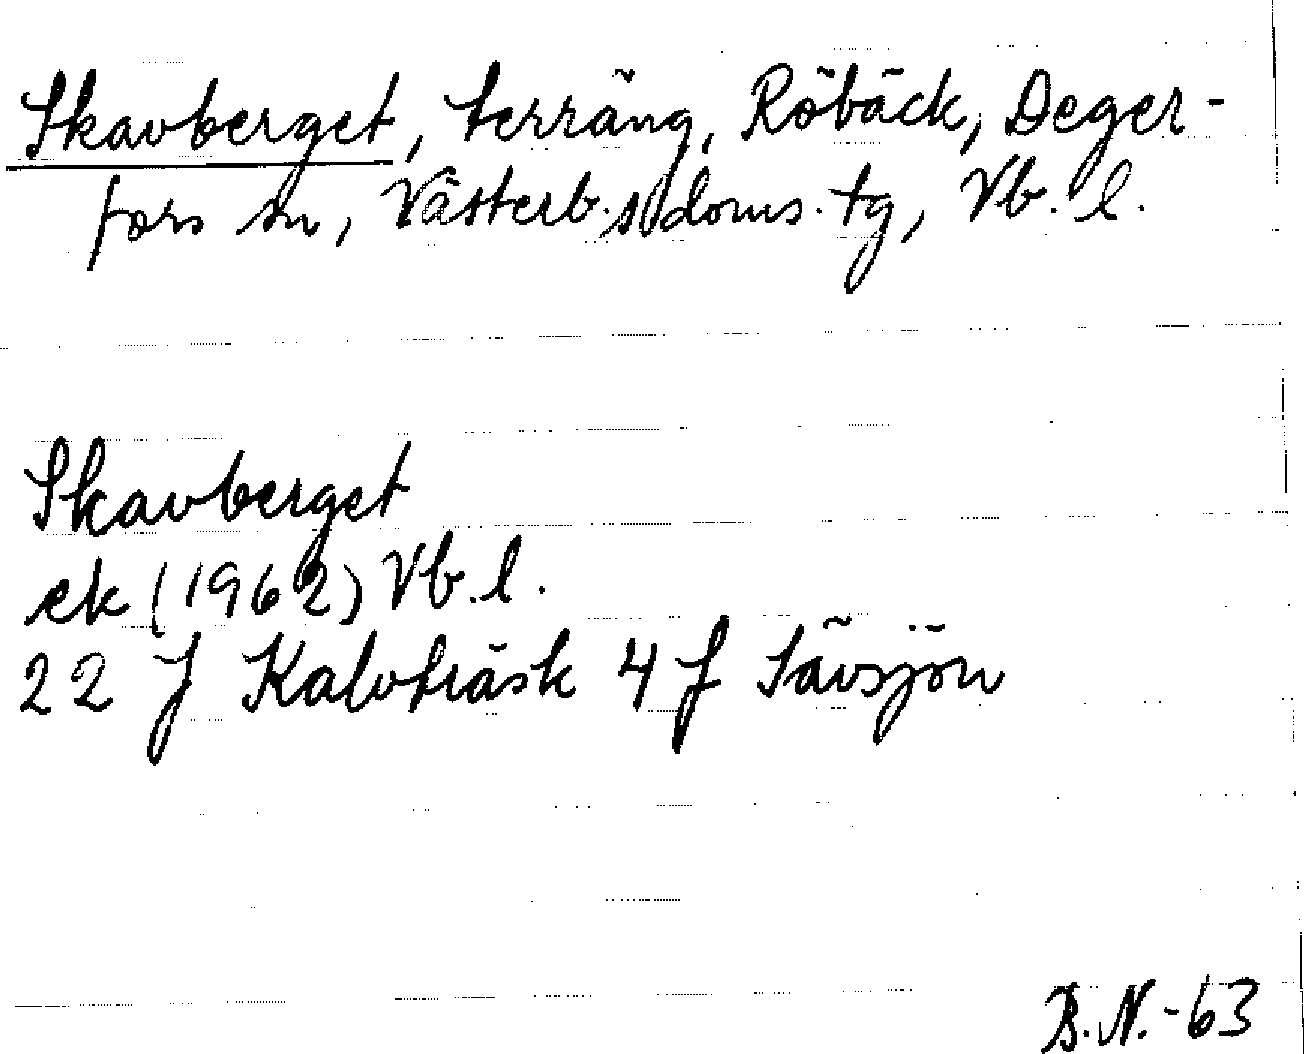 Skavberget, terräng, Röbäck, Deger-
fors sn, Västerb. s. doms. tg, Vb. l.
Skavberget
ek (1962) Vb. l.
22 J Kalvträsk 4 f Sävsjön
B. N. -63